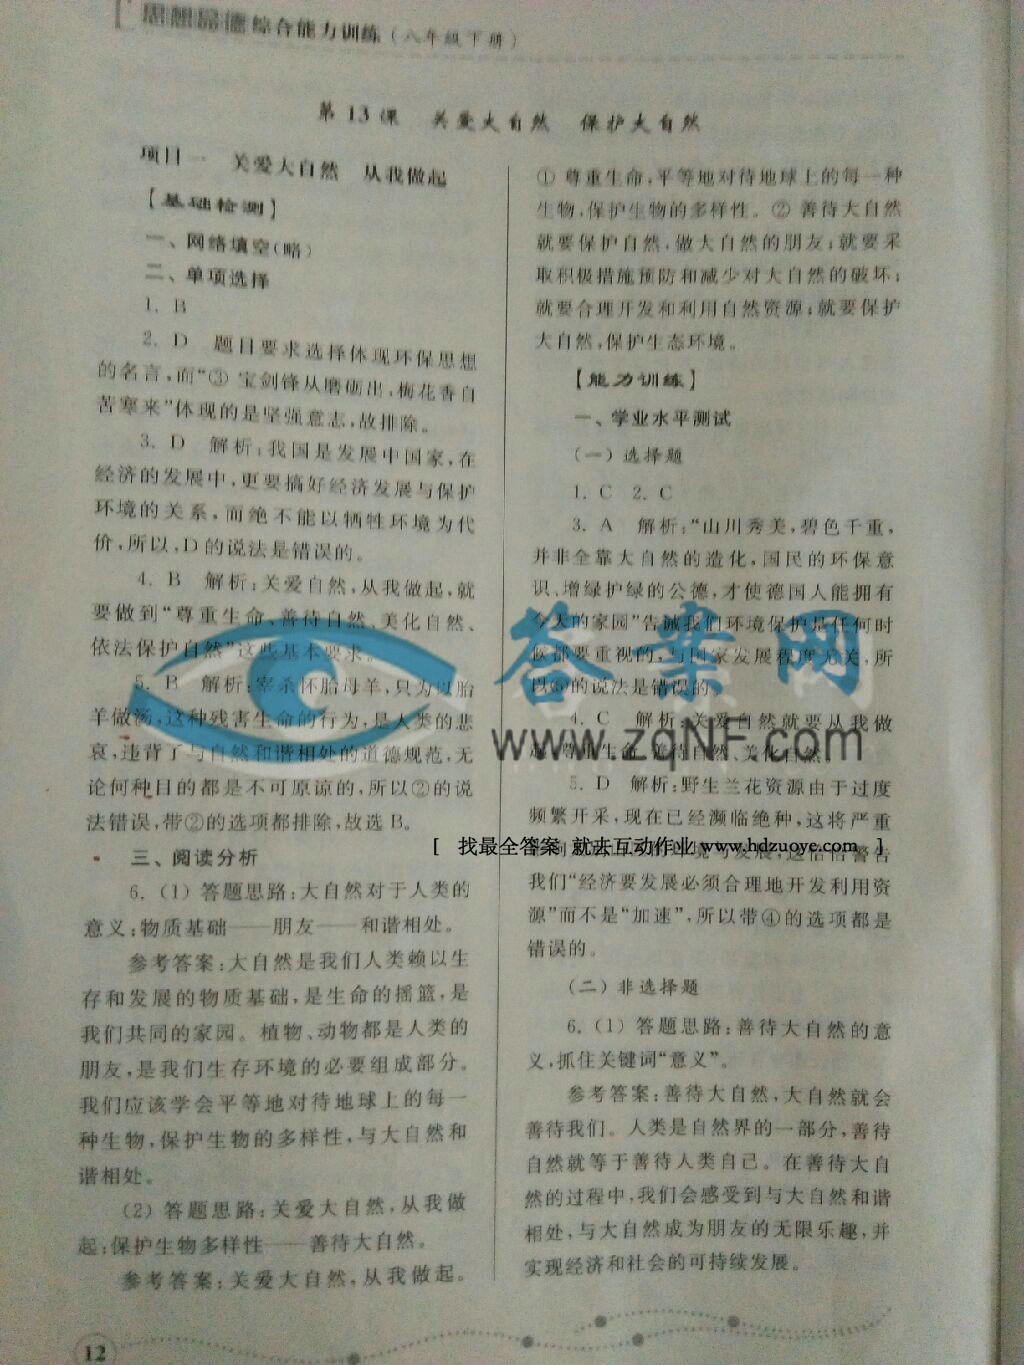 思想品德综合能力训练(八年级下册)
第13课 关爱大自然 保护大自然
项目一 关爱大自然 从我做起
【基础检测】
一、网络填空(略)
二、单项选择
1. B
2. D 题目要求选择体现环保思想
的名言,而“③ 宝剑锋从磨砺出,梅花香自
苦寒来”体现的是坚强意志,故排除。
3. D 解析:我国是发展中国家,在
经济的发展中,更要搞好经济发展与保护
环境的关系,而绝不能以牺牲环境为代
价,所以,D的说法是错误的。
4. B 解析:关爱自然,从我做起,就
要做到“尊重生命、善待自然、美化自然、
依法保护自然”这些基本要求。
5. B 解析:宰杀怀胎母羊,只为以胎
羊做汤,这种残害生命的行为,是人类的悲
哀,违背了与自然和谐相处的道德规范,无
论何种目的都是不可原谅的,所以②的说
法错误,带②的选项都排除,故选B。
三、阅读分析
6. (1) 答题思路:大自然对于人类的
意义:物质基础——朋友——和谐相处。
参考答案:大自然是我们人类赖以生
存和发展的物质基础,是生命的摇篮,是
我们共同的家园。植物、动物都是人类的
朋友,是我们生存环境的必要组成部分。
我们应该学会平等地对待地球上的每一
种生物,保护生物的多样性,与大自然和
谐相处。
(2) 答题思路:关爱大自然,从我做
起:保护生物多样性——善待大自然。
参考答案:关爱大自然,从我做起。
① 尊重生命,平等地对待地球上的每一种
生物,保护生物的多样性。② 善待大自然
就要保护自然,做大自然的朋友;就要采
取积极措施预防和减少对大自然的破坏;
就要合理开发和利用自然资源;就要保护
大自然,保护生态环境。
【能力训练】
一、学业水平测试
(一) 选择题
1. C 2. C
3. A 解析:“山川秀美,碧色千重,
并非全靠大自然的造化,国民的环保意
识、增绿护绿的公德,才使德国人能拥有
今天的家园”告诫我们环境保护是任何时
候都要重视的,与国家发展程度无关,所
以⑤的说法是错误的。
4. C 解析:关爱自然就要从我做
尊重生命、善待自然、美化自然
5. D 解析:野生兰花资源由于过度
频繁开采,现在已经濒临绝种,这将严重
境与发展,这恰恰警告
我们“经济要发展必须合理地开发利用资
源”而不是“加速”,所以带④的选项都是
错误的。
(二) 非选择题
6. (1) 答题思路:善待大自然的意
义,抓住关键词“意义”。
参考答案:善待大自然,大自然就会
善待我们。人类是自然界的一部分,善待
自然就等于善待人类自己。在善待大自
然的过程中,我们会感受到与大自然和谐
相处,与大自然成为朋友的无限乐趣,并
实现经济和社会的可持续发展。
12
答案网
www.zqNF.com
[ 找最全答案 就去互动作业 www.hdzuoye.com ]